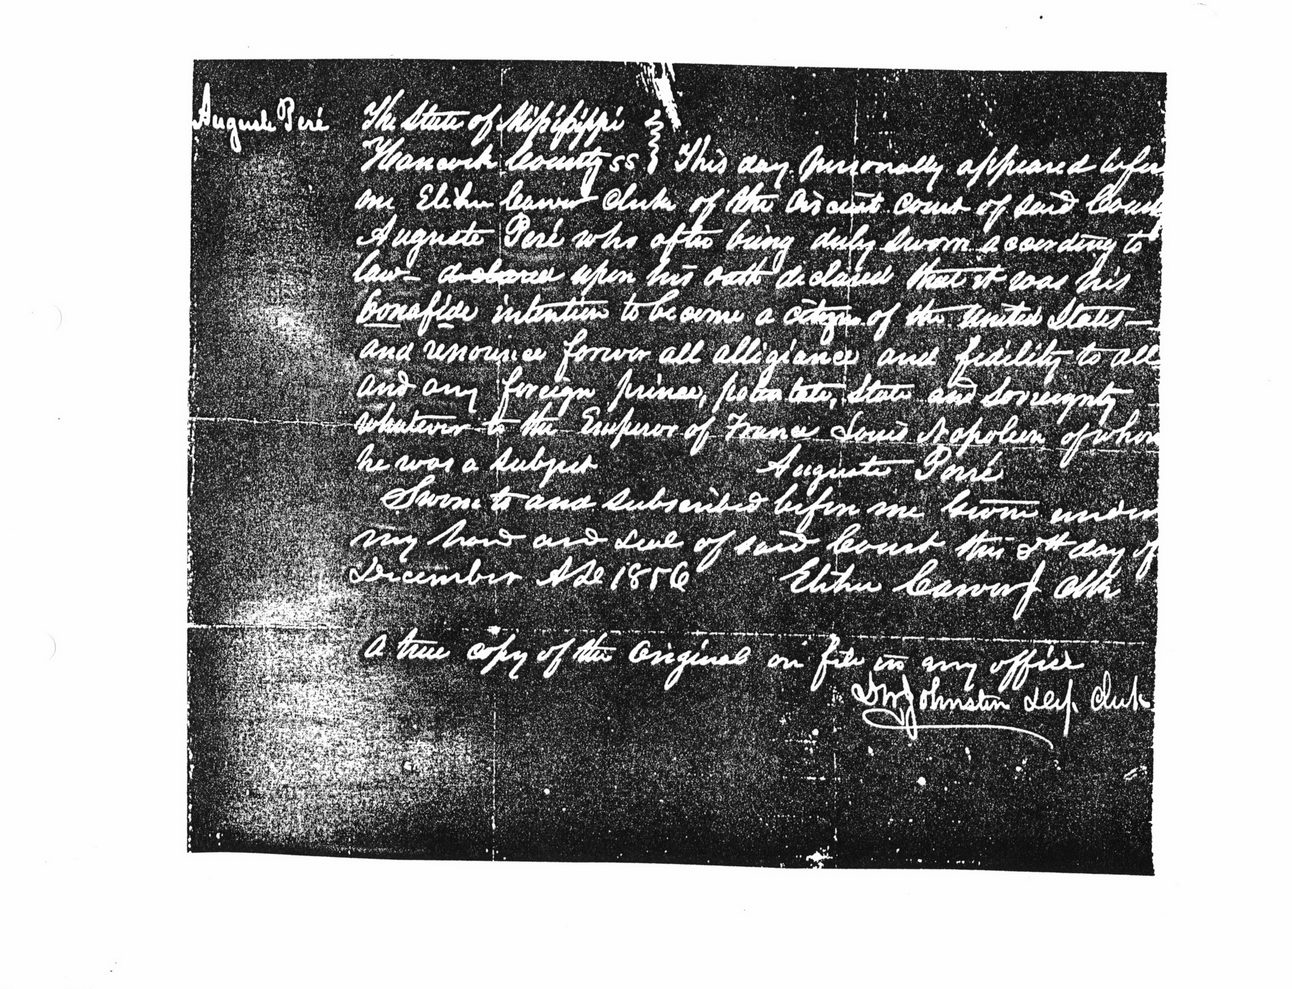 Auguste Peré
The State of Mississippi
Hancock County ss This day personally appeared before
me Elihu Carver Clerk of the Circuit court of said County
Auguste Peré who after being duly sworn according to
law - declared upon his oath declared that it was his
bonafide intention to become a citizen of the United States —
and renounce forever all allegiance and fidelity to all
and any foreign prince, potentate, State and Sovereignty
whatever to the Emperor of France Louis Napoleon of whom
he was a subject Auguste Perré
Sworn to and subscribed before me Given under
my hand and seal of said Court this 8th day of
December AD 1856 Elihu Carver Clk
A true copy of the Original on file in my office
DW Johnston Dep. Clerk